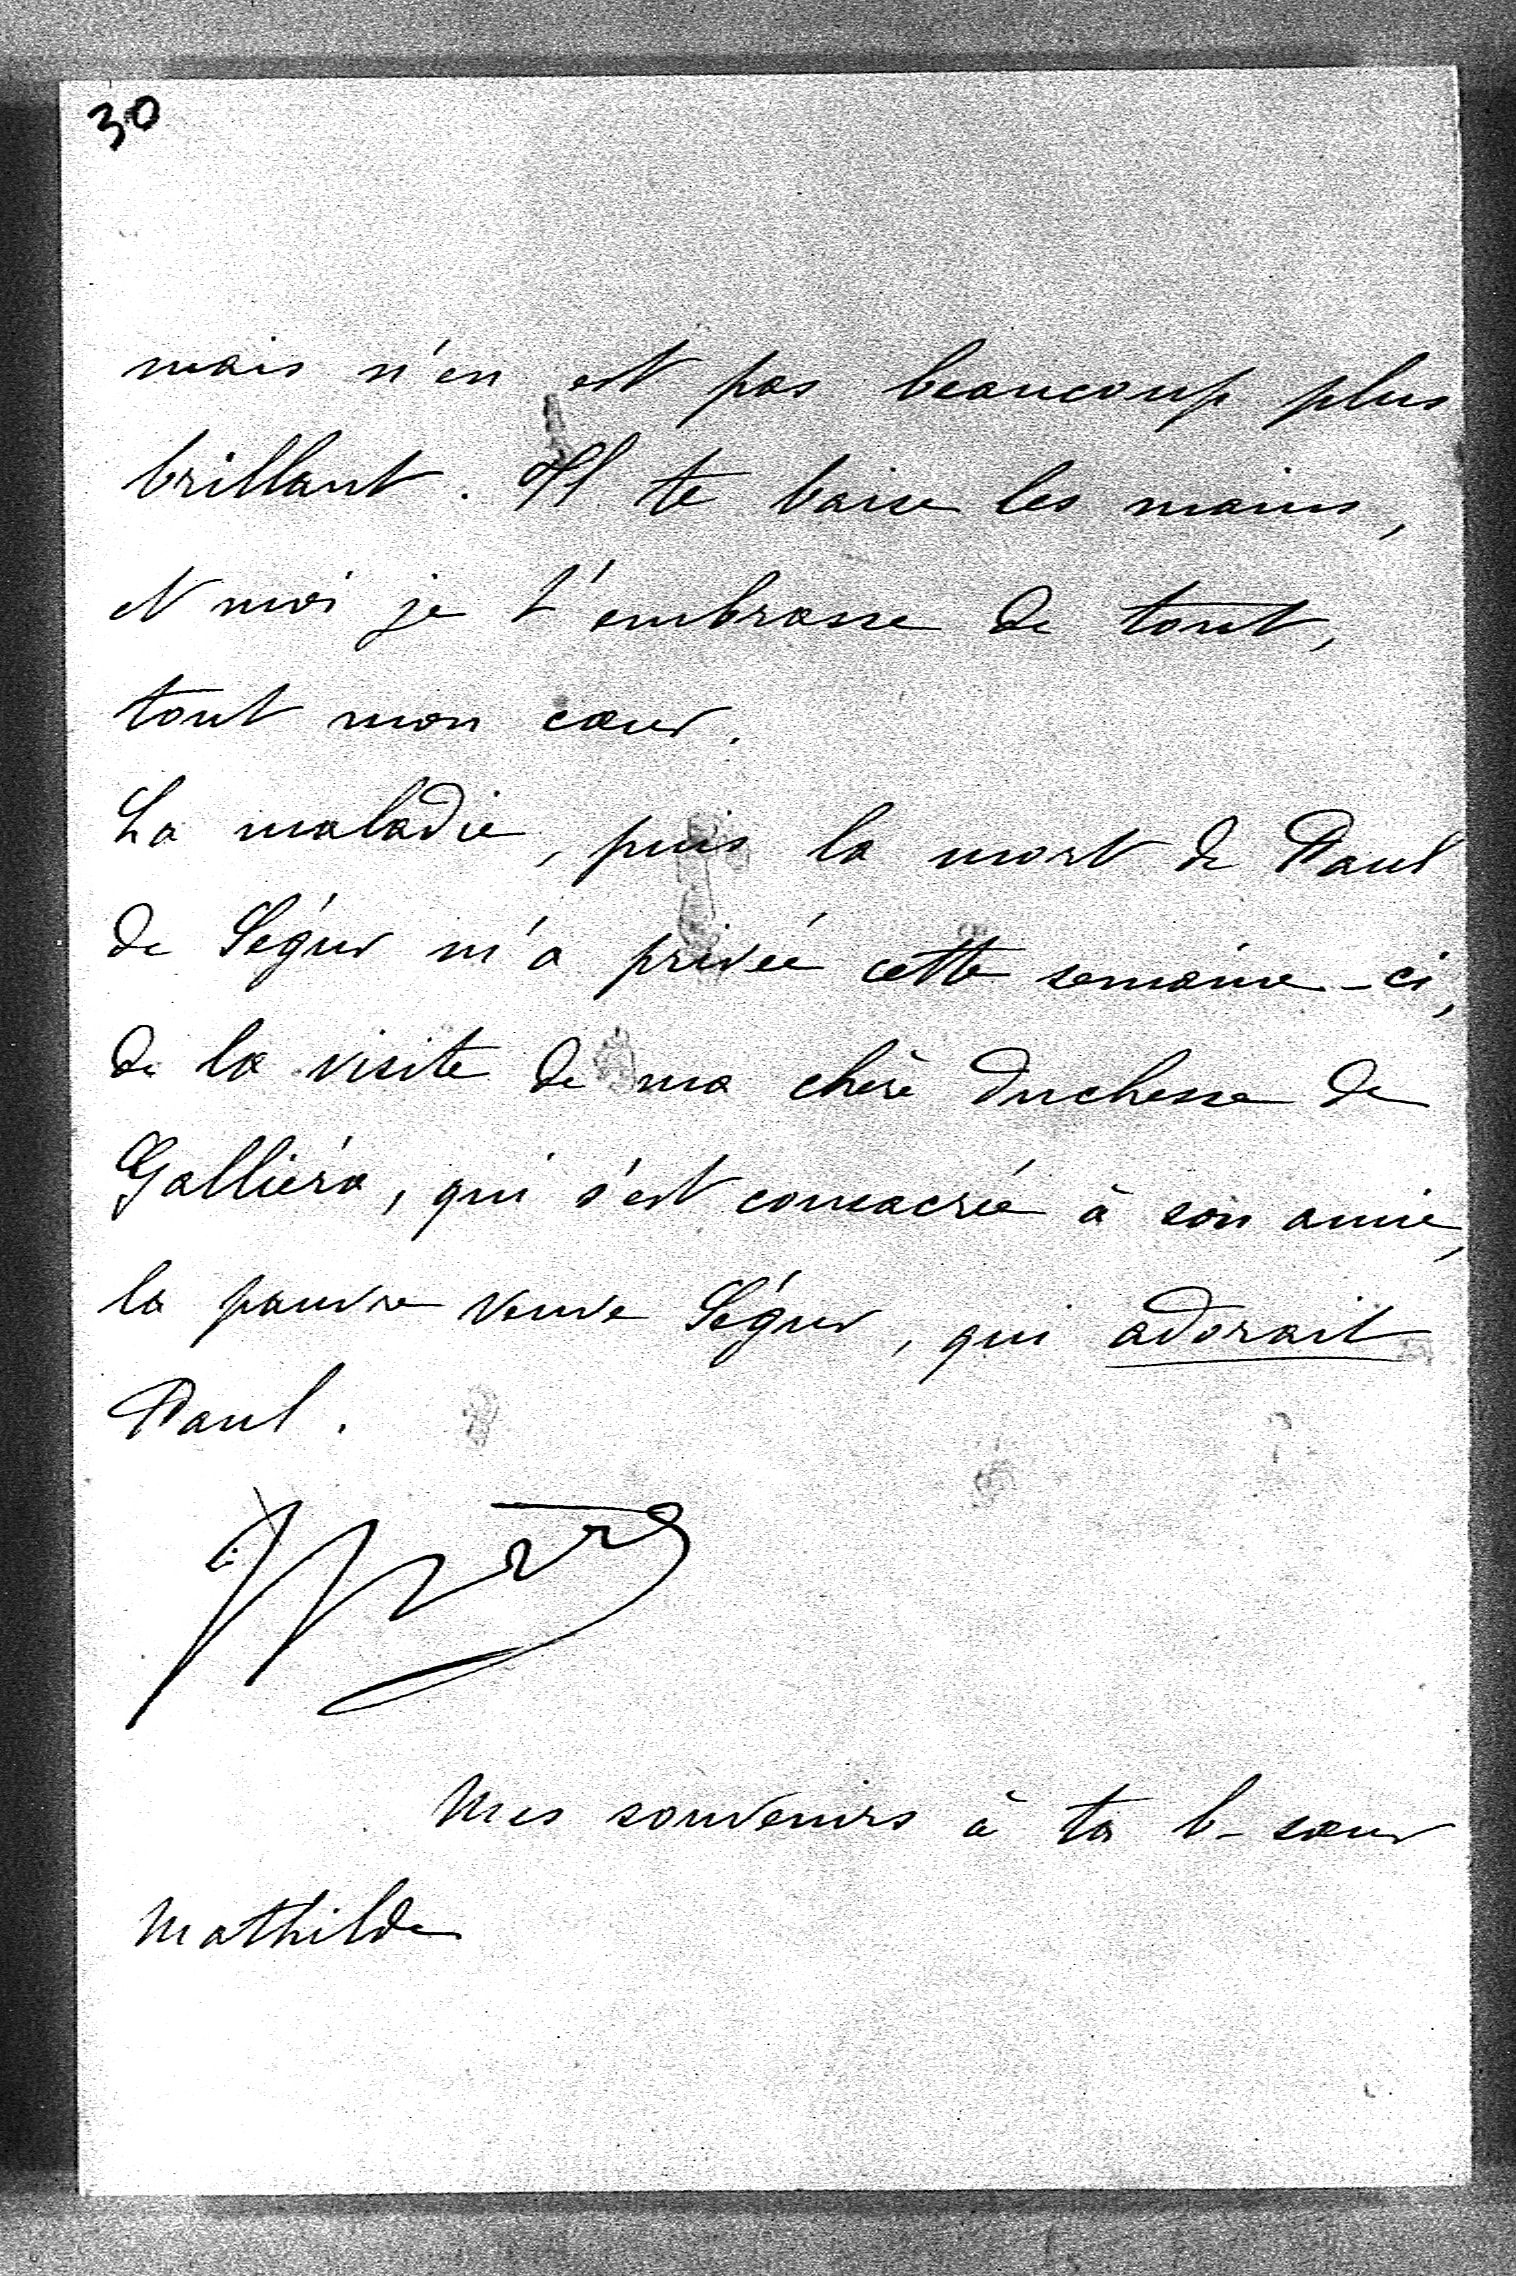 30
mais n'en est pas beaucoup plus
brillant. Il te baise les mains,
et moi je t'embrasse de tout,
tout mon cœur.
La maladie, puis la mort de Paul
de Ségur m'a privée cette semaine-ci,
de la visite de ma chère duchesse de
Galliéra, qui s'est consacrée à son amie,
la pauvre veuve Ségur, qui adorait
Paul.
Mes souvenirs à ta b-sœur
Mathilde